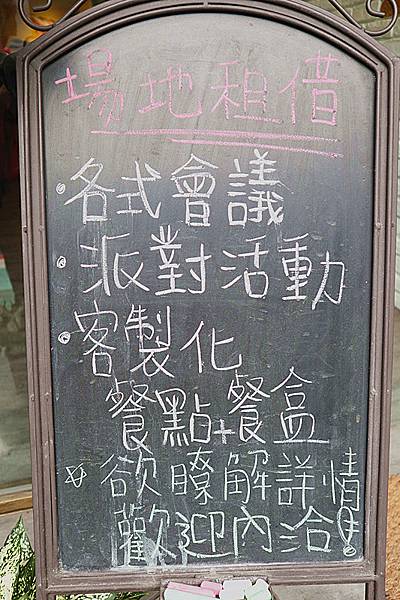 場地租借
各式會議
派對活動
客製化
餐點+餐盒
欲瞭解詳情
歡迎內洽!